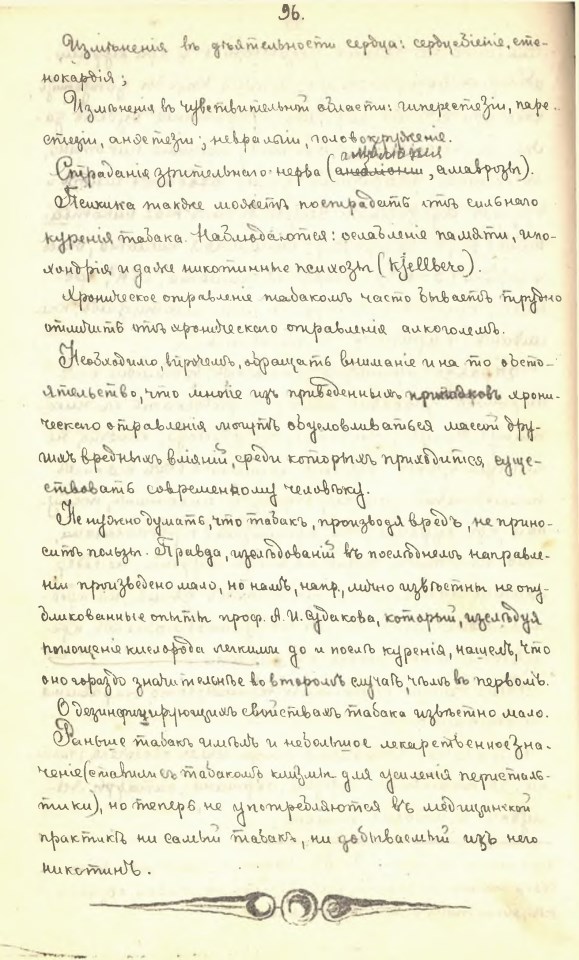 96.
Измѣненія въ дѣятельности сердца: сердцебіеніе, сте-
нокардія;
Измѣнения въ чувствительной области: гиперестезіи, паре-
стезіи, анэстезіи; невралгіи, головокруженіе.
амбліопія
Страданія зрительнаго нерва (амбліопіи, амаврозы).
Психика также можетъ пострадать отъ сильнаго
куренія табака. Наблюдаются: ослабленіе памяти, ипо-
хондрія и даже никотинные психозы (Kjellberg).
Хроническое отравленіе табакомъ часто бываетъ трудно
отличить отъ хроническаго отравленія алкоголемъ.
Необходимо, впрочемъ, обращать вниманіе и на то обсто-
ятельство, что многіе изъ приведенныхъ припадковъ хрони-
ческаго отравленія могутъ обусловливаться массой дру-
гихъ вредныхъ вліяній, среди которыхъ приходится суще-
ствовать современному человѣку.
Не нужно думать, что табакъ, производя вредъ, не прино-
ситъ пользы. Правда, изслѣдованій въ послѣднемъ направле-
ніи произведено мало, но намъ, напр., лично извѣстны не опу-
бликованные опыты проф. А. И. Судакова, который, изслѣдуя
поглощеніе кислорода легкими до и послѣ куренія, нашелъ, что
оно гораздо значительнѣе во второмъ случаѣ, чѣмъ въ первомъ.
О дезинфицирующихъ свойствахъ табака извѣстно мало.
Раньше табакъ имѣлъ и небольшое лекарственное зна-
ченіе (ставили съ табакомъ клизмы для усиленія перисталь-
тики), но теперь не употребляются въ медицинской
практикѣ ни самый табакъ, ни добываемый изъ него
никотинъ.